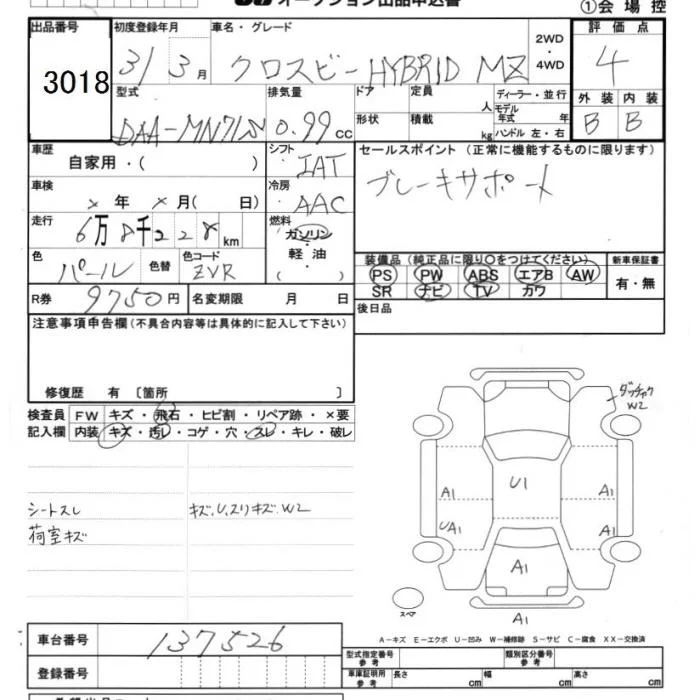 オークション出品申込書
①会場控
出品番号
3018
初度登録年月
31/3月
車名・グレード
クロスビー HYBRID MZ
2WD
・
4WD
評価点
4
外装 内装
B B
型式
DAA-MN71S
排気量
0.99 CC
ドア
形状
定員 人
積載 kg
ディーラー・並行
モデル年式 年
ハンドル 左・右
車歴
自家用・( )
シフト
IAT
セールスポイント (正常に機能するものに限ります)
ブレーキサポート
車検
× 年 × 月( 日)
冷房
AAC
走行
6万8千228km
燃料
ガソリン
・
軽油
( )
色
パール
色替
色コード
ZVR
装備品 (純正品に限り〇をつけてください)
PS PW ABS エアB AW
SR ナビ TV カワ
新車保証書
有・無
R券 9750円
名変期限 月 日
後日品
注意事項申告欄(不具合内容等は具体的に記入して下さい)
修復歴 有 〔箇所 〕
検査員記入欄
FW キズ・飛石・ヒビ割・リペア跡・×要
内装 キズ・汚レ・コゲ・穴・スレ・キレ・破レ
シートスレ
荷室キズ
キズ、U、スリキズ W2
W2
U1
A1
A1
UA1
A1
A1
スペア
A1
A-キズ E-エクボ U-凹み W-補修跡 S-サビ C-腐食 XX-交換済
車台番号
137526
登録番号
型式指定番号
参考
類別区分番号
参考
車庫証明用
参考
長さ cm
幅 cm
高さ cm